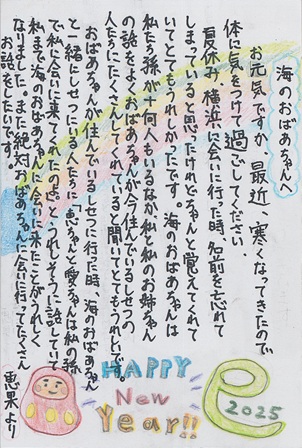 海のおばあちゃんへ
お元気ですか。最近、寒くなってきたので
体に気をつけて過ごしてください。
夏休み、横浜に会いに行った時、名前を忘れて
しまっていると思ったけれどちゃんと覚えてくれて
いてとてもうれしかったです。海のおばあちゃんは
私たち孫が十何人もいるなか、私と私のお姉ちゃん
の話をよくおばあちゃんが今住んでいるしせつの
人たちにたくさんしてくれていると聞いてとてもうれしいです。
おばあちゃんが住んでいるしせつに行った時、海のおばあちゃん
と一緒にしせつにいる人たちに恵ちゃんと愛ちゃんは私の孫
で私に会いに来てくれたのよ。とうれしそうに話していて
私まで海のおばあちゃんに会いに来たことがうれしく
なりました。また絶対おばあちゃんに会いに行ってたくさん
お話をしたいです。
恵果より
HAPPY
New
Year!!
2025